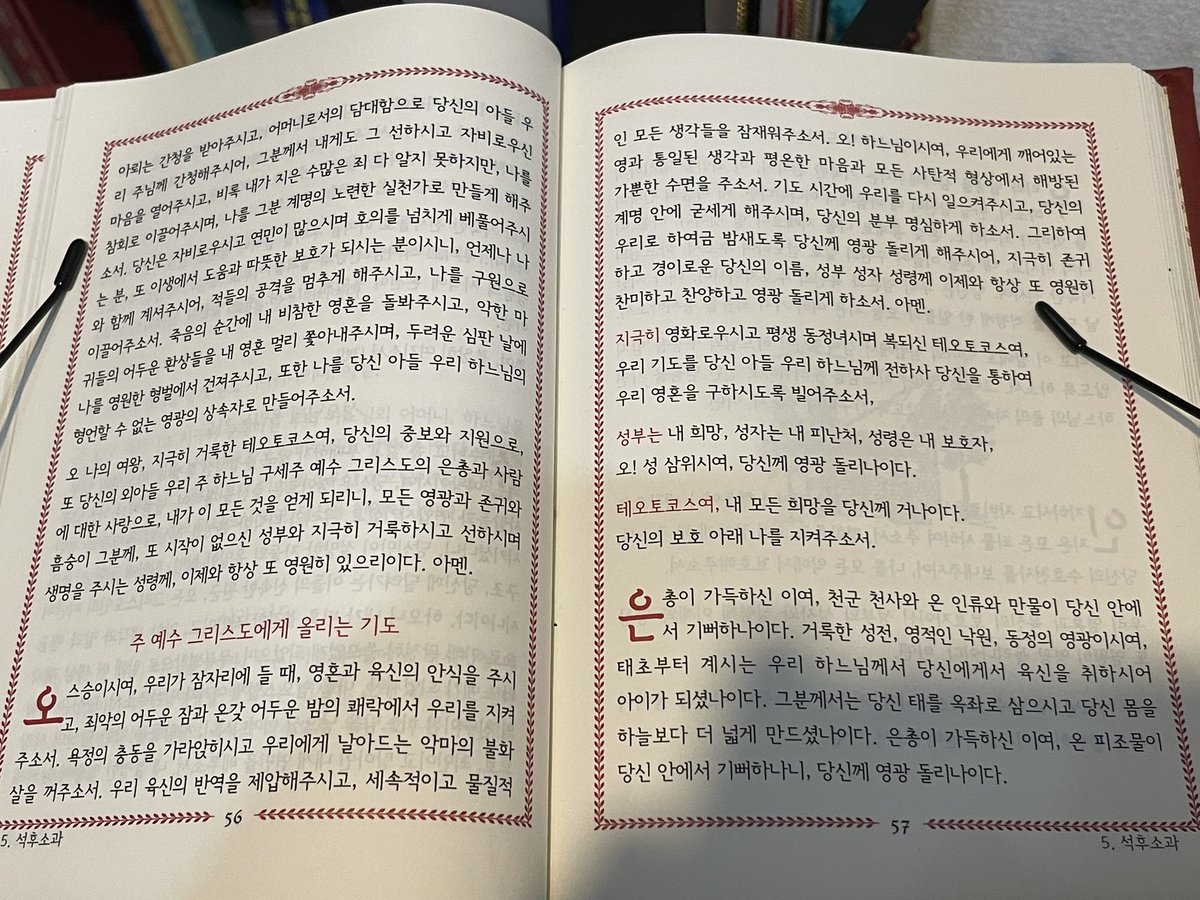 아뢰는 간청을 받아주시고, 어머니로서의 담대함으로 당신의 아들 우
리 주님께 간청해주시어, 그분께서 내게도 그 선하시고 자비로우신
마음을 열어주시고, 비록 내가 지은 수많은 죄 다 알지 못하지만, 나를
참회로 이끌어주시며, 나를 그분 계명의 노련한 실천가로 만들게 해주
소서. 당신은 자비로우시고 연민이 많으시며 호의를 넘치게 베풀어주시
는 분, 또 이생에서 도움과 따뜻한 보호가 되시는 분이시니, 언제나 나
와 함께 계셔주시어, 적들의 공격을 멈추게 해주시고, 나를 구원으로
이끌어주소서. 죽음의 순간에 내 비참한 영혼을 돌봐주시고, 악한 마
귀들의 어두운 환상들을 내 영혼 멀리 쫓아내주시며, 두려운 심판 날에
나를 영원한 형벌에서 건져주시고, 또한 나를 당신 아들 우리 하느님의
형언할 수 없는 영광의 상속자로 만들어주소서.
오 나의 여왕, 지극히 거룩한 테오토코스여, 당신의 중보와 지원으로,
또 당신의 외아들 우리 주 하느님 구세주 예수 그리스도의 은총과 사람
에 대한 사랑으로, 내가 이 모든 것을 얻게 되리니, 모든 영광과 존귀와
흠숭이 그분께, 또 시작이 없으신 성부와 지극히 거룩하시고 선하시며
생명을 주시는 성령께, 이제와 항상 또 영원히 있으리이다. 아멘.
주 예수 그리스도에게 올리는 기도
오 스승이시여, 우리가 잠자리에 들 때, 영혼과 육신의 안식을 주시
고, 죄악의 어두운 잠과 온갖 어두운 밤의 쾌락에서 우리를 지켜
주소서. 욕정의 충동을 가라앉히시고 우리에게 날아드는 악마의 불화
살을 꺼주소서. 우리 육신의 반역을 제압해주시고, 세속적이고 물질적
56
5. 석후소과
인 모든 생각들을 잠재워주소서. 오! 하느님이시여, 우리에게 깨어있는
영과 통일된 생각과 평온한 마음과 모든 사탄적 형상에서 해방된
가뿐한 수면을 주소서. 기도 시간에 우리를 다시 일으켜주시고, 당신의
계명 안에 굳세게 해주시며, 당신의 분부 명심하게 하소서. 그리하여
우리로 하여금 밤새도록 당신께 영광 돌리게 해주시어, 지극히 존귀
하고 경이로운 당신의 이름, 성부 성자 성령께 이제와 항상 또 영원히
찬미하고 찬양하고 영광 돌리게 하소서. 아멘.
지극히 영화로우시고 평생 동정녀시며 복되신 테오토코스여,
우리 기도를 당신 아들 우리 하느님께 전하사 당신을 통하여
우리 영혼을 구하시도록 빌어주소서,
성부는 내 희망, 성자는 내 피난처, 성령은 내 보호자,
오! 성 삼위시여, 당신께 영광 돌리나이다.
테오토코스여, 내 모든 희망을 당신께 거나이다.
당신의 보호 아래 나를 지켜주소서.
은총이 가득하신 이여, 천군 천사와 온 인류와 만물이 당신 안에
서 기뻐하나이다. 거룩한 성전, 영적인 낙원, 동정의 영광이시여,
태초부터 계시는 우리 하느님께서 당신에게서 육신을 취하시어
아이가 되셨나이다. 그분께서는 당신 태를 옥좌로 삼으시고 당신 몸을
하늘보다 더 넓게 만드셨나이다. 은총이 가득하신 이여, 온 피조물이
당신 안에서 기뻐하나니, 당신께 영광 돌리나이다.
57
5. 석후소과